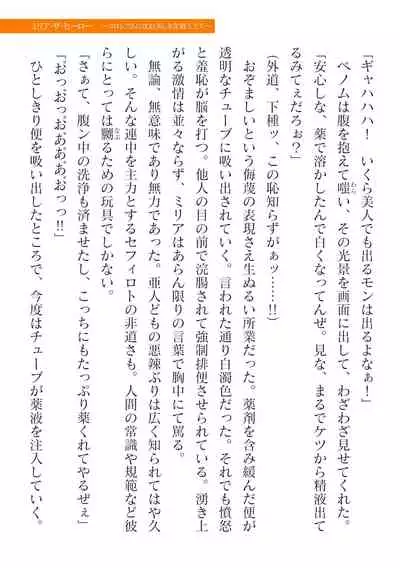 「ギャハハハ！　いくら美人でも出るモンは出るよなぁ！」
ペノムは腹を抱えて嗤い、その光景を画面に出して、わざわざ見せてくれた。
「安心しな、薬で溶かしたんで白くなってんぜ。見な、まるでケツから精液出て
るみてぇだろぉ？」
（外道、下種ッ、この恥知らずがぁッ……!!）
おぞましいという侮蔑の表現さえ生ぬるい所業だった。薬剤を含み緩んだ便が
透明なチューブに吸い出されていく。言われた通り白濁色だった。それでも憤怒
と羞恥が脳を打つ。他人の目の前で浣腸されて強制排便させられている。湧き上
がる激情は並々ならず、ミリアはあらん限りの言葉で胸中にて罵る。
無論、無意味であり無力であった。亜人どもの悪辣ぶりは広く知られてはや久
しい。そんな連中を主力とするセフィロトの非道さも。人間の常識や規範など彼
らにとっては嬲るための玩具でしかない。
「さぁて、腹ン中の洗浄も済ませたし、こっちにもたっぷり薬くれてやるぜぇ」
「おっ゛おっ゛おあ゛あ゛あ゛おっっ!!」
ひとしきり便を吸い出したところで、今度はチューブが薬液を注入していく。